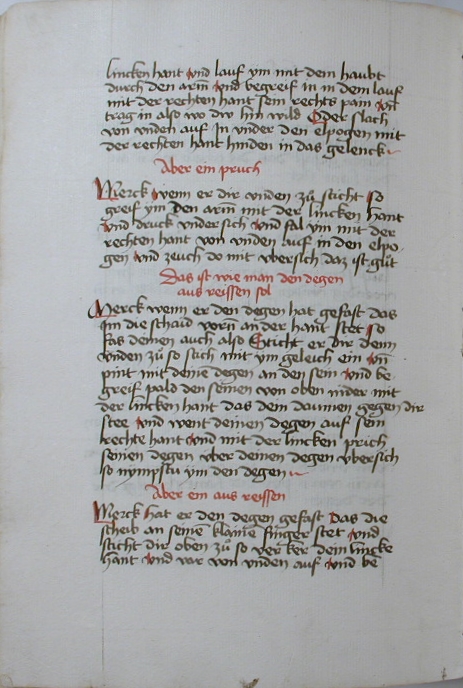 lincken hant vnd lauf ym mit dem haubt
durch den arm vnd begreif in in dem lauf
mit der rechten hant sein rechts pain vn̄
trag in also wo dw hin wild Oder slach
von vnden auf in vnder den elpogen mit
der rechten hant hinden in das gelenck
Aber ein pruch
Merck wenn er dir vnden zů sticht so
greif ym den arm mit der lincken hant
vnd druck vndersich vnd fal ym mit der
rechten hant von vnden auf in den elpo
gen vnd zeuch do mit vbersich daz ist gůt
Das ist wie man den degen
aus reissen sol
Merck wenn er den degen hat gefast das
im die schaid vorn an der hant stet so
fas deinen auch also Sticht er dir denn
vnden zů so stich mit ym geleich ein vn̄
pint mit deinē degen an den sein vnd be
greif pald den seinen von oben nider mit
der lincken hant das dem daumen gegen dir
stee vnd went deinen degen auf sein
rechte hant vnd mit der lincken prich
seinen degen vber deinen degen vbersich
so nympstu ym den degen
Aber ein aus reissen
Merck hat er den degen gefast das die
scheib an seinē klainē finger stet vnd
sticht dir oben zů so verker dein lincke
hant vnd var von vnden auf vnd be